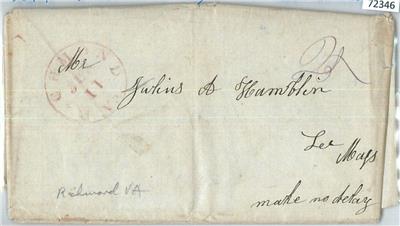 72346
RICHMOND VA
11
Mr
Julius A Hamblin
Lee
Mass
make no delay
Richmond VA